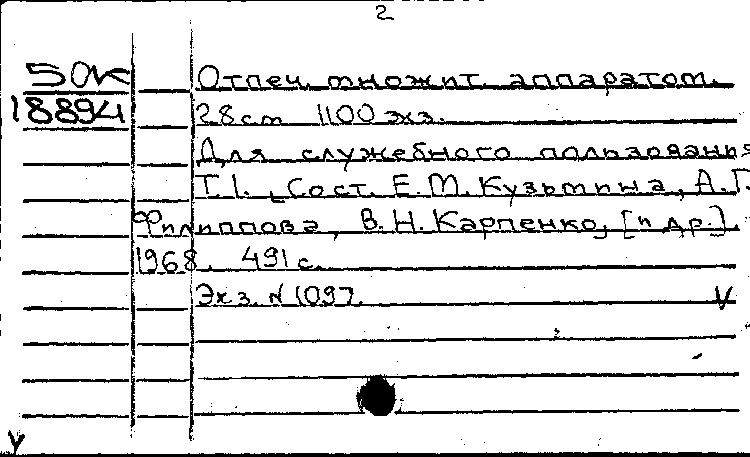 2
50к Отпеч. множит. аппаратом.
18894 28 cm 1100 экз.
Для служебного пользования
Т.1. Сост. Е.М. Кузьмина, А.Г.
Филиппова, В.Н. Карпенко, [и др.].
1968. 491 с.
Экз. N 1097. V
V